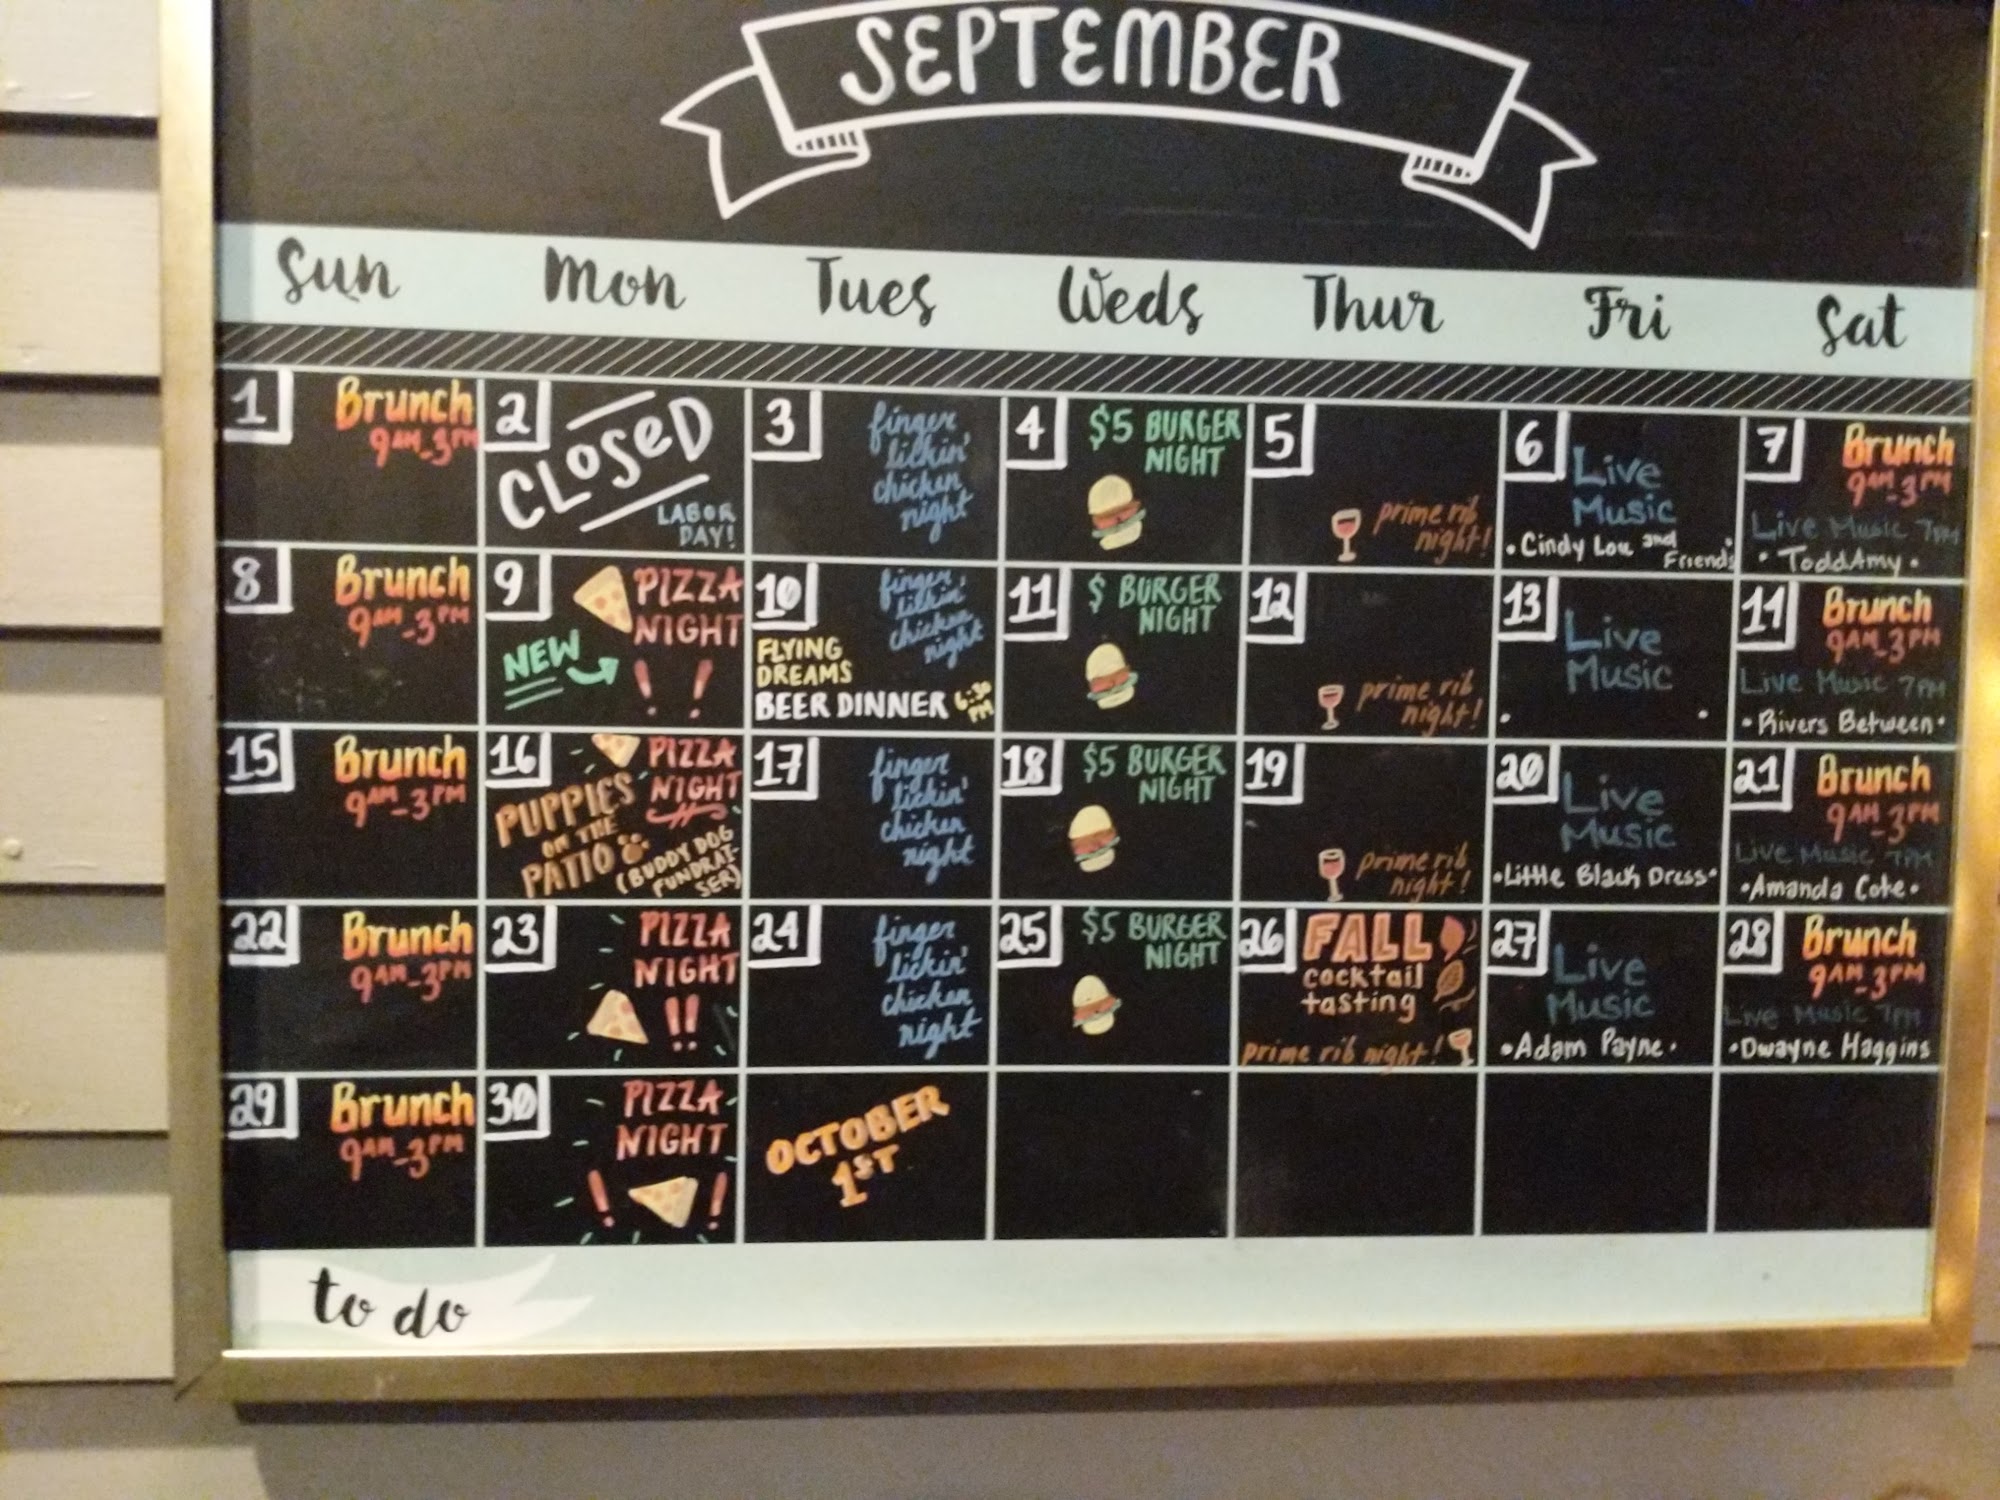 SEPTEMBER
Sun Mon Tues Weds Thur Fri Sat
1
Brunch
9AM-3PM
2
CLOSED
LABOR
DAY!
3
finger
lickin'
chicken
night
4
$5 BURGER
NIGHT
5
prime rib
night!
6
Live
Music
• Cindy Lou and
Friends
7
Brunch
9AM-3PM
Live Music 7PM
• ToddAmy •
8
Brunch
9AM-3PM
9
PIZZA
NIGHT
NEW
! !
10
finger
lickin'
chicken
night
FLYING
DREAMS
BEER DINNER 6:30
PM
11
$ BURGER
NIGHT
12
prime rib
night!
13
Live
Music
• •
14
Brunch
9AM-3PM
Live Music 7PM
• Rivers Between •
15
Brunch
9AM-3PM
16
PIZZA
NIGHT
PUPPIES
ON THE
PATIO
(BUDDY DOG
FUNDRAI-
SER)
17
finger
lickin'
chicken
night
18
$5 BURGER
NIGHT
19
prime rib
night!
20
Live
Music
• Little Black Dress •
21
Brunch
9AM-3PM
Live Music 7PM
• Amanda Cote •
22
Brunch
9AM-3PM
23
PIZZA
NIGHT
!!
24
finger
lickin'
chicken
night
25
$5 BURGER
NIGHT
26
FALL
cocktail
tasting
prime rib night!
27
Live
Music
• Adam Payne •
28
Brunch
9AM-3PM
Live Music 7PM
• Dwayne Haggins
29
Brunch
9AM-3PM
30
PIZZA
NIGHT
! !
OCTOBER
1ST
to do